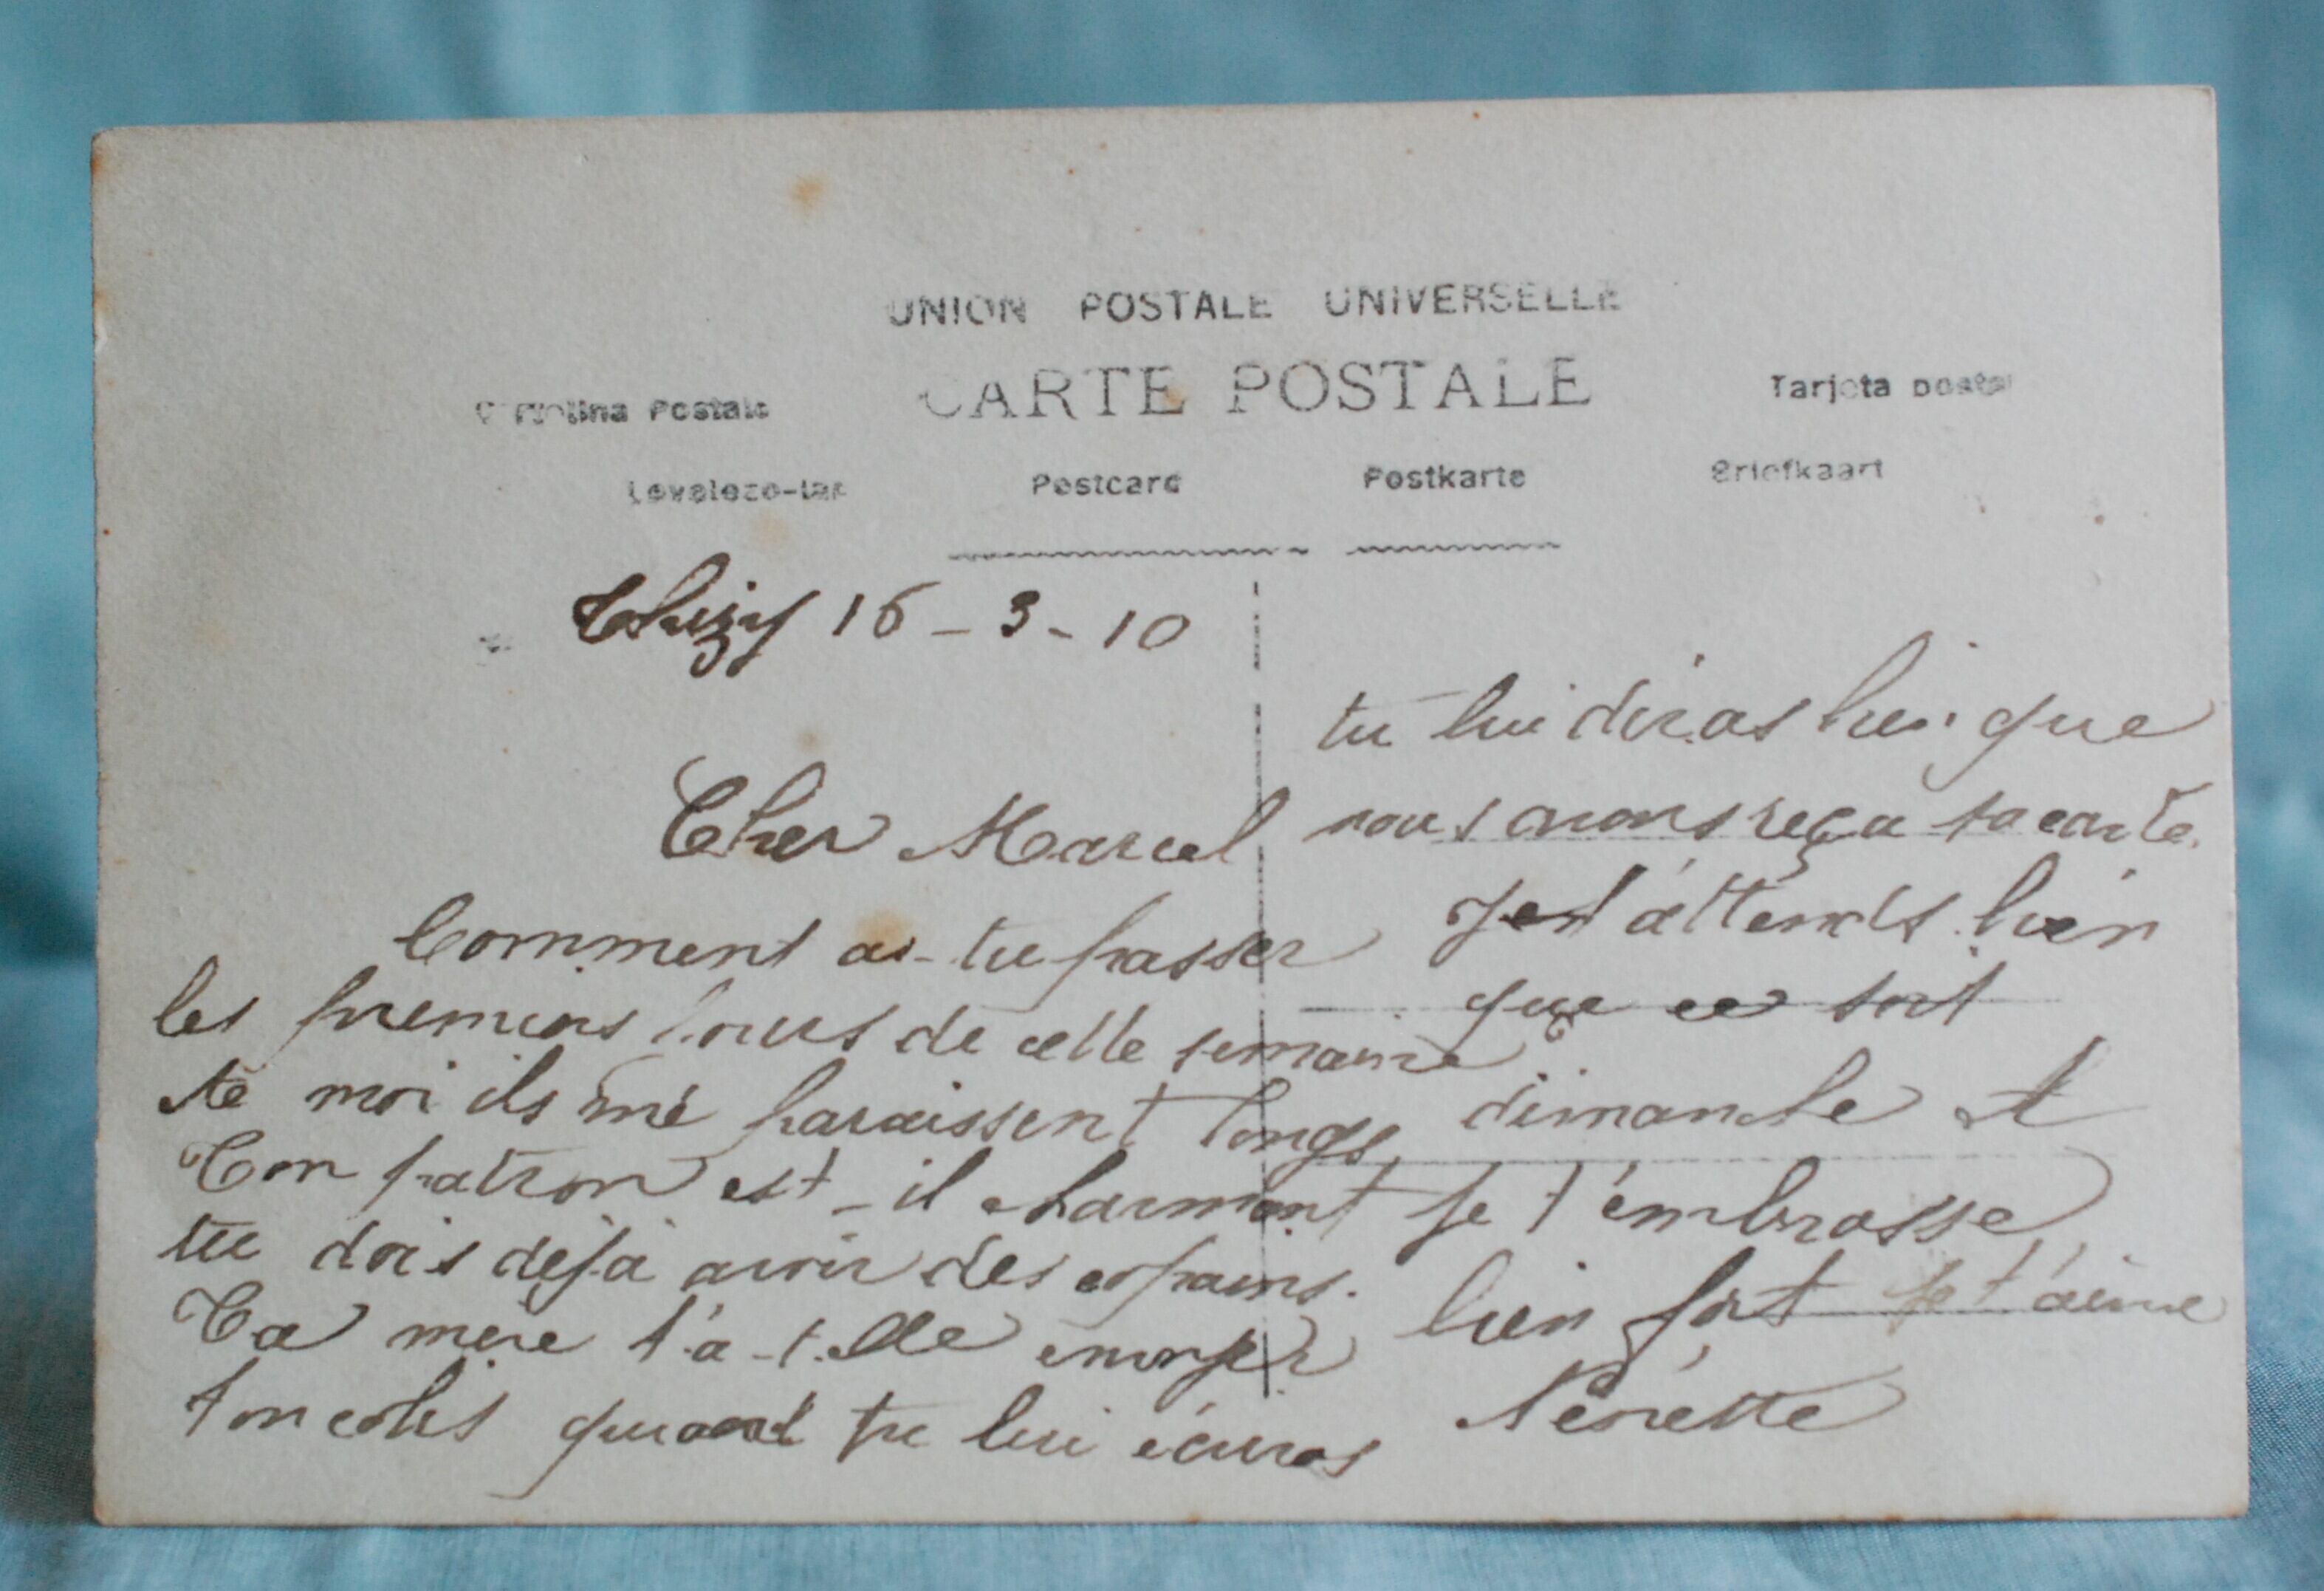 UNION POSTALE UNIVERSELLE
CARTE POSTALE
Cartolina Postale
Tarjeta postal
Levelezo-lap
Postcard
Postkarte
Briefkaart
Thizy 16 - 3 - 10
Cher Marcel
Comment as-tu passer
les premiers jours de cette semaine
moi ils me paraissent longs
Ton patron est-il charmant
tu dois déjà avoir des copains.
Ta mère t'a-t-elle envoyer
ton colis quand tu lui écriras
tu lui diras bien que
nous avons reçu sa carte.
Je t'attends bien
que ce soit
dimanche et
Je t'embrasse
bien fort Je t'aime
Nénette